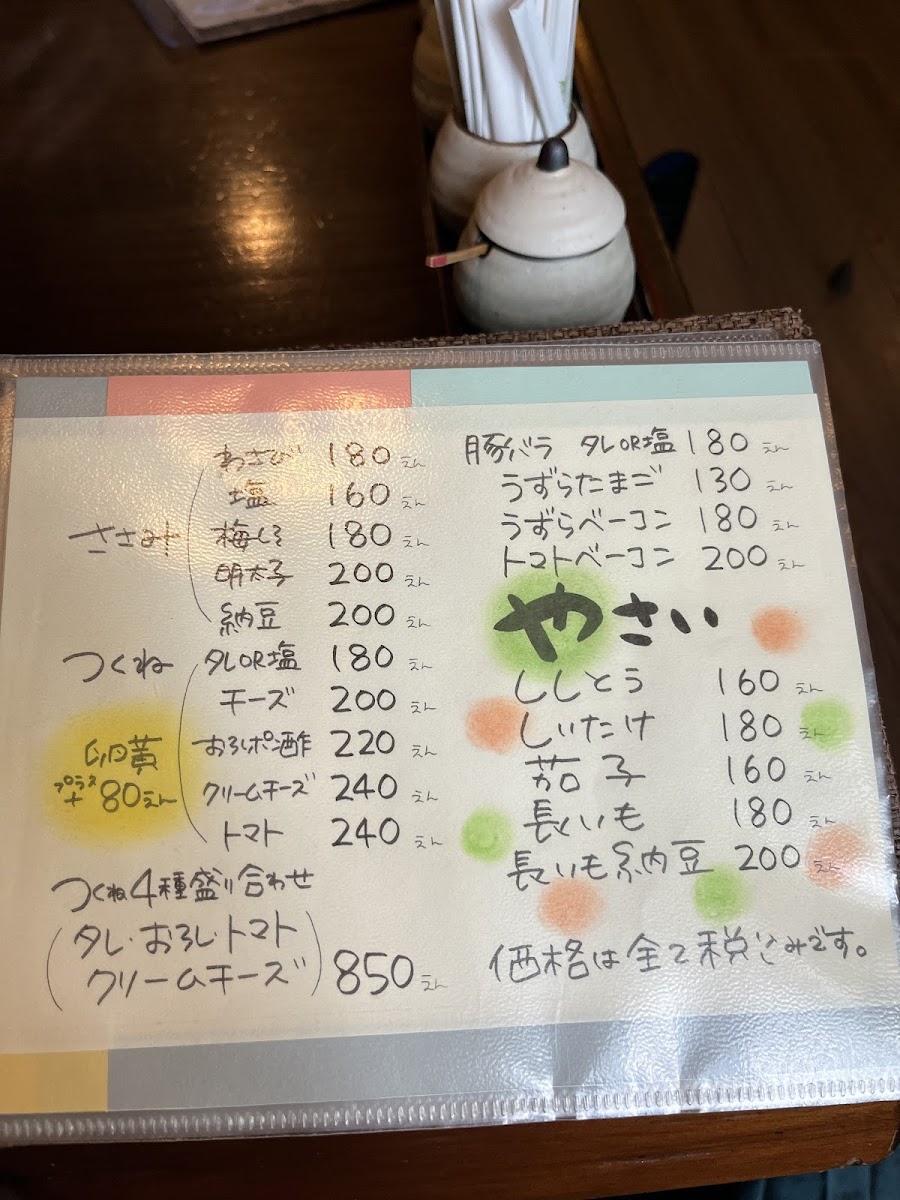 ささみ
わさび 180えん
塩 160えん
梅しそ 180えん
明太子 200えん
納豆 200えん
つくね
タレOR塩 180えん
チーズ 200えん
おろしポン酢 220えん
クリームチーズ 240えん
トマト 240えん
卵黄
プラス
+80えん
つくね4種盛り合わせ
(タレ・おろし・トマト
クリームチーズ) 850えん
豚バラ タレOR塩 180えん
うずらたまご 130えん
うずらベーコン 180えん
トマトベーコン 200えん
やさい
ししとう 160えん
しいたけ 180えん
茄子 160えん
長いも 180えん
長いも納豆 200えん
価格は全て税込みです。